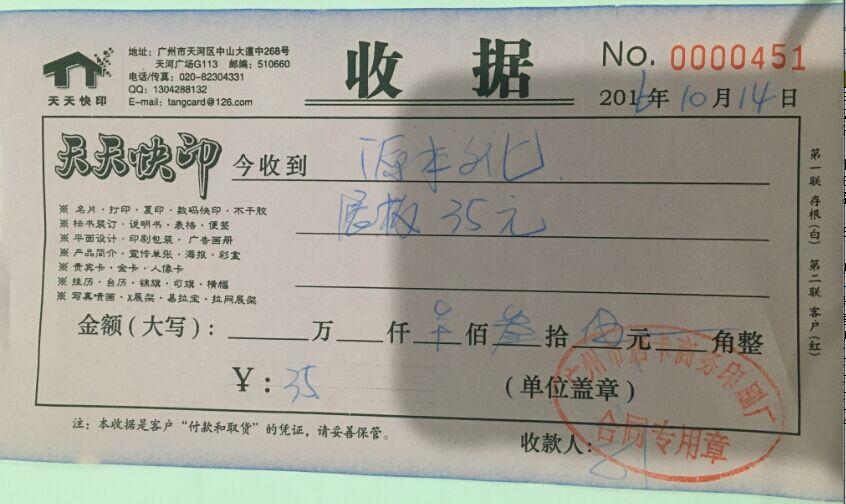 天天快印
地址：广州市天河区中山大道中268号
天河广场G113 邮编：510660
电话/传真：020-82304331
QQ：1304288132
E-mail：tangcard@126.com
收 据
No. 0000451
2016年10月14日
天天快印
今收到 源本文化
展板 35元
※ 名片·打印·复印·数码快印·不干胶
※ 标书装订·说明书·表格·便笺
※ 平面设计·印刷包装·广告画册
※ 产品简介·宣传单张·海报·彩盒
※ 贵宾卡·金卡·人像卡
※ 挂历·台历·锦旗·司旗·横幅
※ 写真喷画·X展架·易拉宝·拉网展架
金额（大写）： 万 仟 佰 叁拾 伍元 角整
￥：35
（单位盖章）
注：本收据是客户“付款和取货”的凭证，请妥善保管。
收款人：
第一联 存根（白） 第二联 客户（红）
商务印刷厂
合同专用章